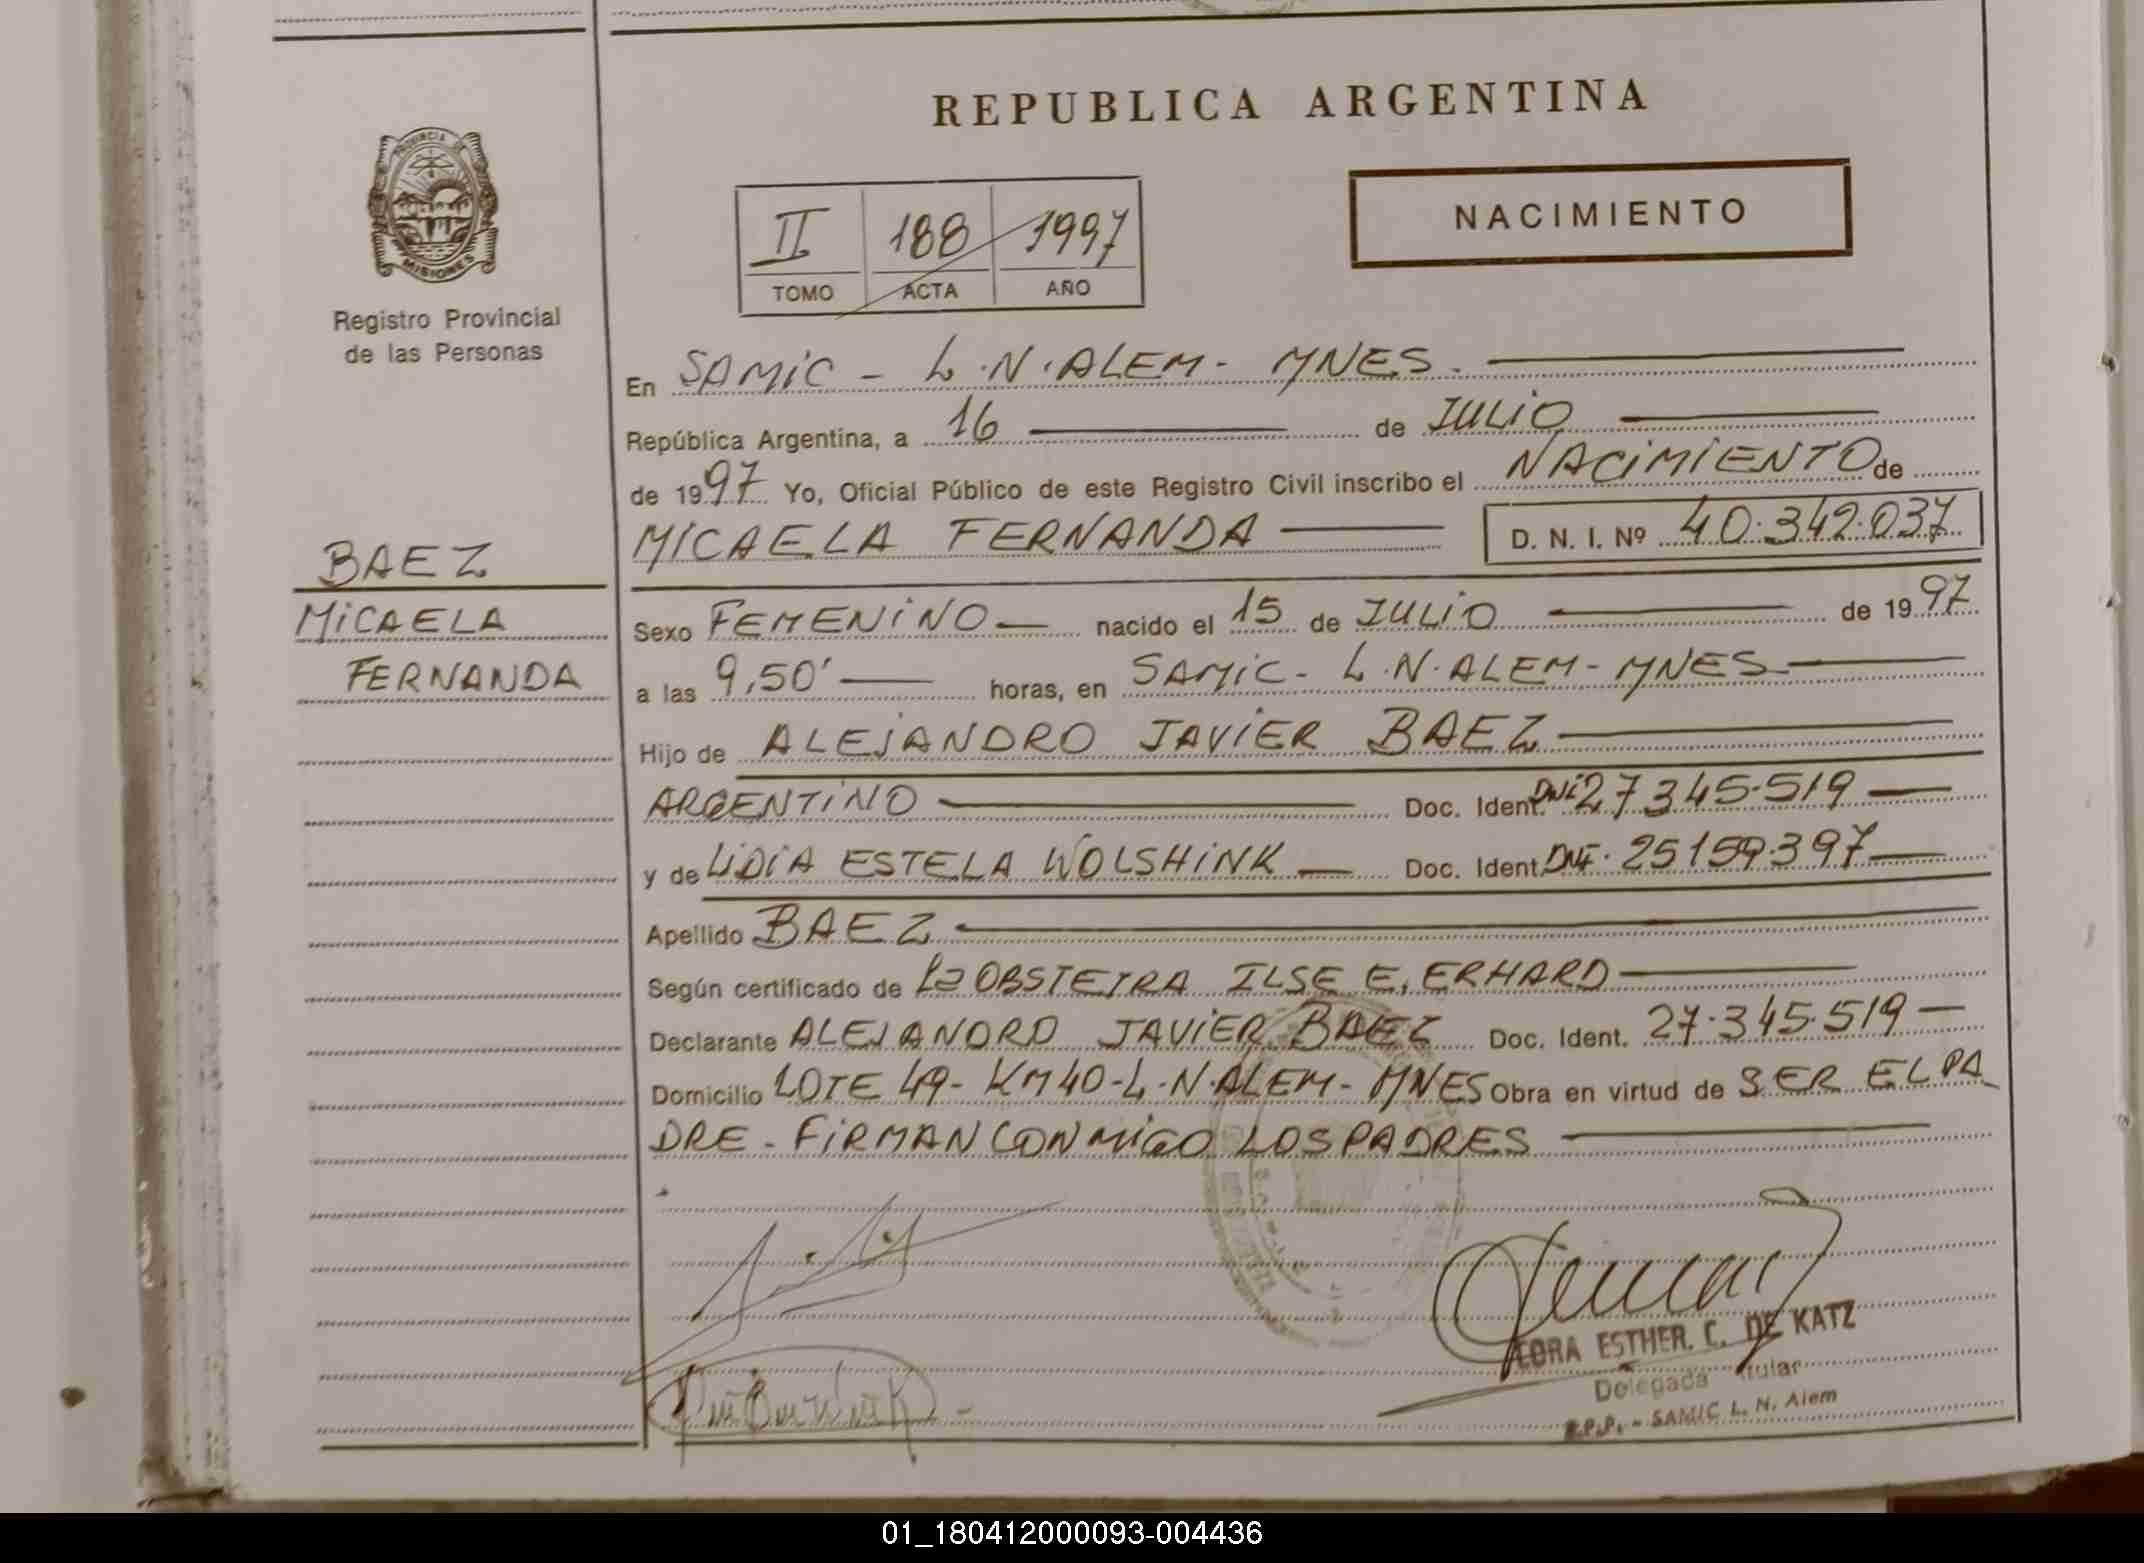 REPUBLICA ARGENTINA
NACIMIENTO
II 188 1997
TOMO ACTA AÑO
PROVINCIA DE
MISIONES
Registro Provincial
de las Personas
En SAMIC - L.N.ALEM - MNES.
República Argentina, a 16 de JULIO
de 1997 Yo, Oficial Público de este Registro Civil inscribo el NACIMIENTO de
MICAELA FERNANDA D. N. I. Nº 40.342.037
BAEZ
MICAELA
FERNANDA
Sexo FEMENINO nacido el 15 de JULIO de 1997
a las 9,50' horas, en SAMIC - L.N.ALEM - MNES
Hijo de ALEJANDRO JAVIER BAEZ
ARGENTINO Doc. Ident. DNI 27345.519
y de LIDIA ESTELA WOLSHINK Doc. Ident. DNI. 25159397
Apellido BAEZ
Según certificado de La OBSTETRA ILSE E. ERHARD
Declarante ALEJANDRO JAVIER BAEZ Doc. Ident. 27.345.519
Domicilio LOTE 49 - KM 40 - L.N.ALEM - MNES Obra en virtud de SER EL PA
DRE - FIRMAN CONMIGO LOS PADRES
ESTHER. C. DE KATZ
Delegada Titular
R.P.P. - SAMIC L. N. Alem
01_180412000093-004436